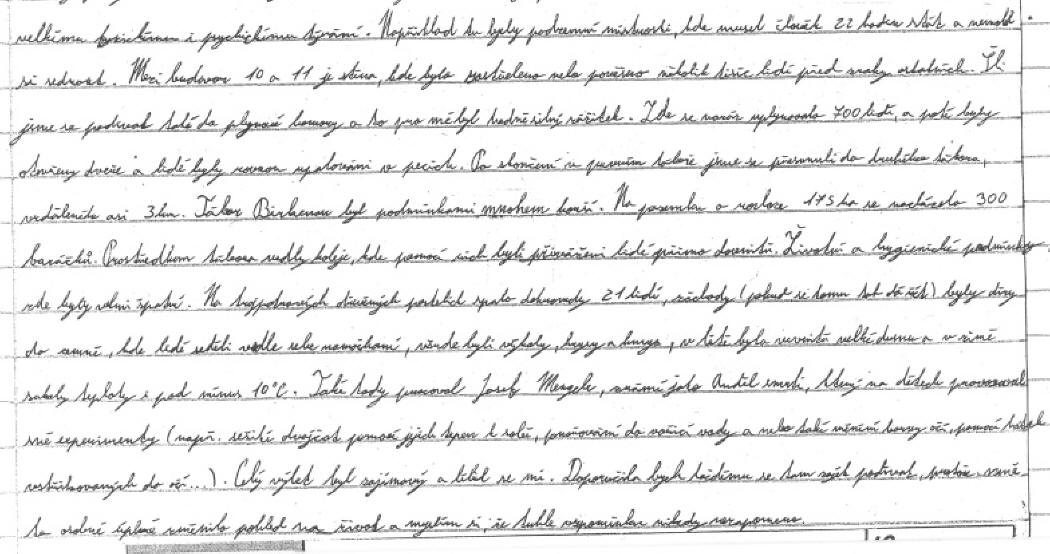 velkému fyzickému i psychickému týrání. Například tu byly podzemní místnosti, kde musel člověk 22 hodin stát a nemohl
si sednout. Mezi budovou 10 a 11 je stěna, kde bylo zastřeleno nebo pověšeno několik tisíc lidí před zraky ostatních. Šli
jsme se podívat také do plynové komory a to pro mě byl hodně silný zážitek. Zde se naráz uplynovalo 700 lidí, a poté byly
otevřeny dveře a lidé byly rovnou upalováni v pecích. Po skončení v prvním táboře jsme se přesunuli do druhého tábora,
vzdáleného asi 3 km. Tábor Birkenau byl podmínkami mnohem horší. Na pozemku o rozloze 175 ha se nacházelo 300
baráčků. Prostředkem tábora vedly koleje, kde pomocí nich byli přiváženi lidé přímo dovnitř. Životní a hygienické podmínky
zde byly velmi špatné. Na trojpatrových dřevěných postelích spalo dohromady 21 lidí, záchody (pokud se tomu tak dá říct) byly díry
do země, kde lidé seděli vedle sebe namačkaní, všude byli výkaly, krysy a hmyz, v létě bylo uvnitř velké dusno a v zimě
sahaly teploty i pod mínus 10°C. Také tady pracoval Josef Mengele, známí jako Anděl smrti, který na dětech provozoval
své experimenty (např. sešití dvojčat pomocí jejich tepen k sobě, ponořování do vařící vody a nebo také měnění barvy očí, pomocí látek
vstřikovaných do očí...). Celý výlet byl zajímavý a líbil se mi. Doporučila bych každému se tam zajít podívat, protože mně
to osobně úplně změnilo pohled na život a myslím si, že tuhle vzpomínku nikdy nezapomenu.